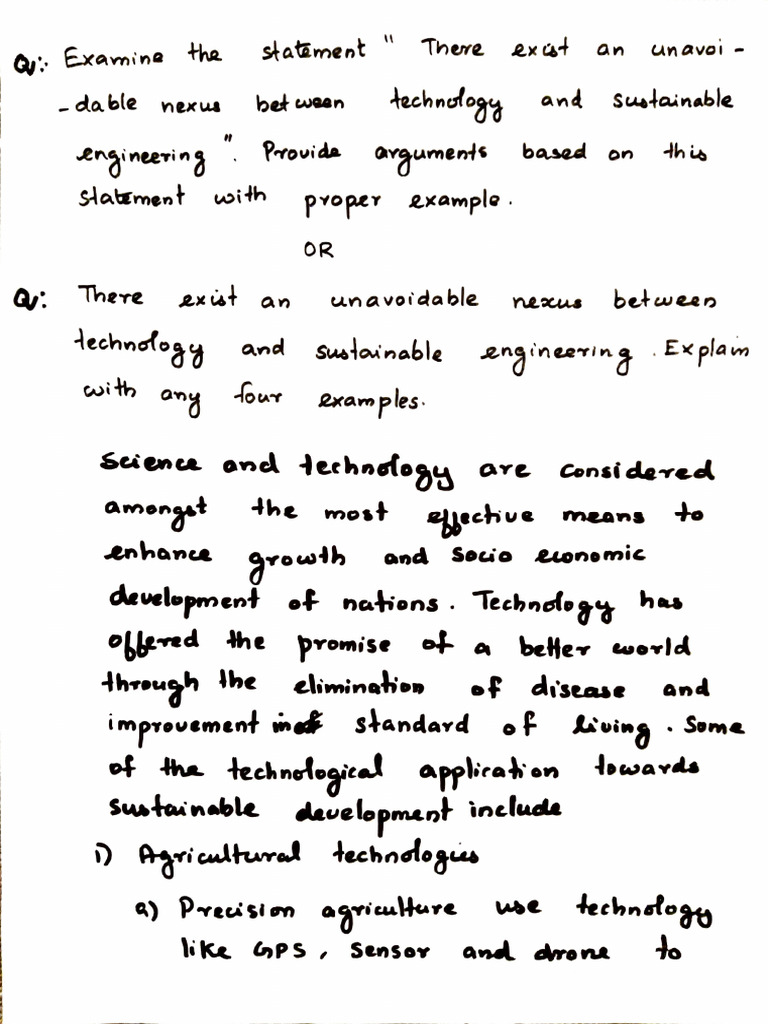 Q: Examine the statement " There exist an unavoi -
- dable nexus between technology and sustainable
engineering ". Provide arguments based on this
statement with proper example.
OR
Q: There exist an unavoidable nexus between
technology and sustainable engineering. Explain
with any four examples.
Science and technology are considered
amongst the most effective means to
enhance growth and socio economic
development of nations. Technology has
offered the promise of a better world
through the elimination of disease and
improvement in standard of living. Some
of the technological application towards
sustainable development include
i) Agricultural technologies
a) Precision agriculture use technology
like GPS, sensor and drone to